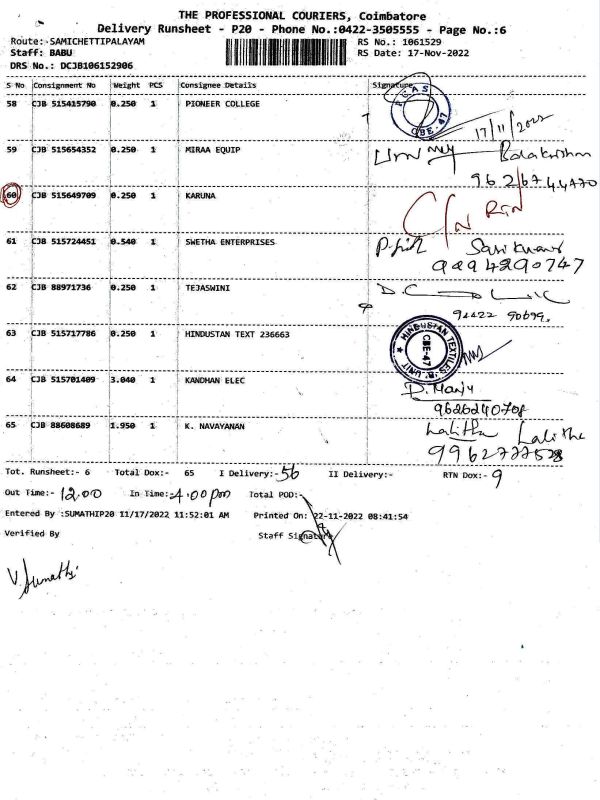 THE PROFESSIONAL COURIERS, Coimbatore
Delivery Runsheet - P20 - Phone No.:0422-3505555 - Page No.:6
Route:- SAMICHETTIPALAYAM RS No.: 1061529
Staff: BABU RS Date: 17-Nov-2022
DRS No.: DCJB106152906
S No Consignment No Weight PCS Consignee Details Signature
58 CJB 515415790 0.250 1 PIONEER COLLEGE
CBE-47
17/11/2022
59 CJB 515654352 0.250 1 MIRAA EQUIP Balakrishnan
60 CJB 515649709 0.250 1 KARUNA C/N RTN
61 CJB 515724451 0.540 1 SWETHA ENTERPRISES
9894290747
62 CJB 88971736 0.250 1 TEJASWINI
63 CJB 515717786 0.250 1 HINDUSTAN TEXT 236663
HINDUSTAN TEXTILES 'B' UNIT CBE-47
64 CJB 515701409 3.040 1 KANDHAN ELEC
9626240708
65 CJB 88608689 1.950 1 K. NAVAYANAN Lalitha Lalitha
9962777528
Tot. Runsheet:- 6 Total Dox:- 65 I Delivery:- 56 II Delivery:- RTN Dox:- 9
Out Time:- 12.00 In Time:- 4.00 pm Total POD:-
Entered By :SUMATHIP20 11/17/2022 11:52:01 AM Printed On: 22-11-2022 08:41:54
Verified By Staff Signature
V. Sumathi